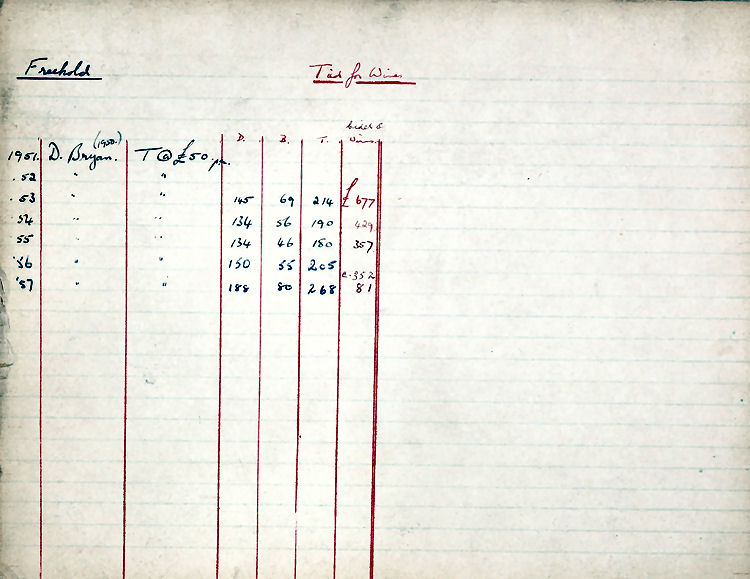 Freehold Tied for Wines
(1950.) cider &
D. B. T. wines.
1951. D. Bryan. T @ £50 p.a.
. 52 " "
. 53 " " 145 69 214 £ 677
54 " " 134 56 190 429
55 " " 134 46 180 357
'56 " " 150 55 205
c. 352
'57 " " 188 80 268 81